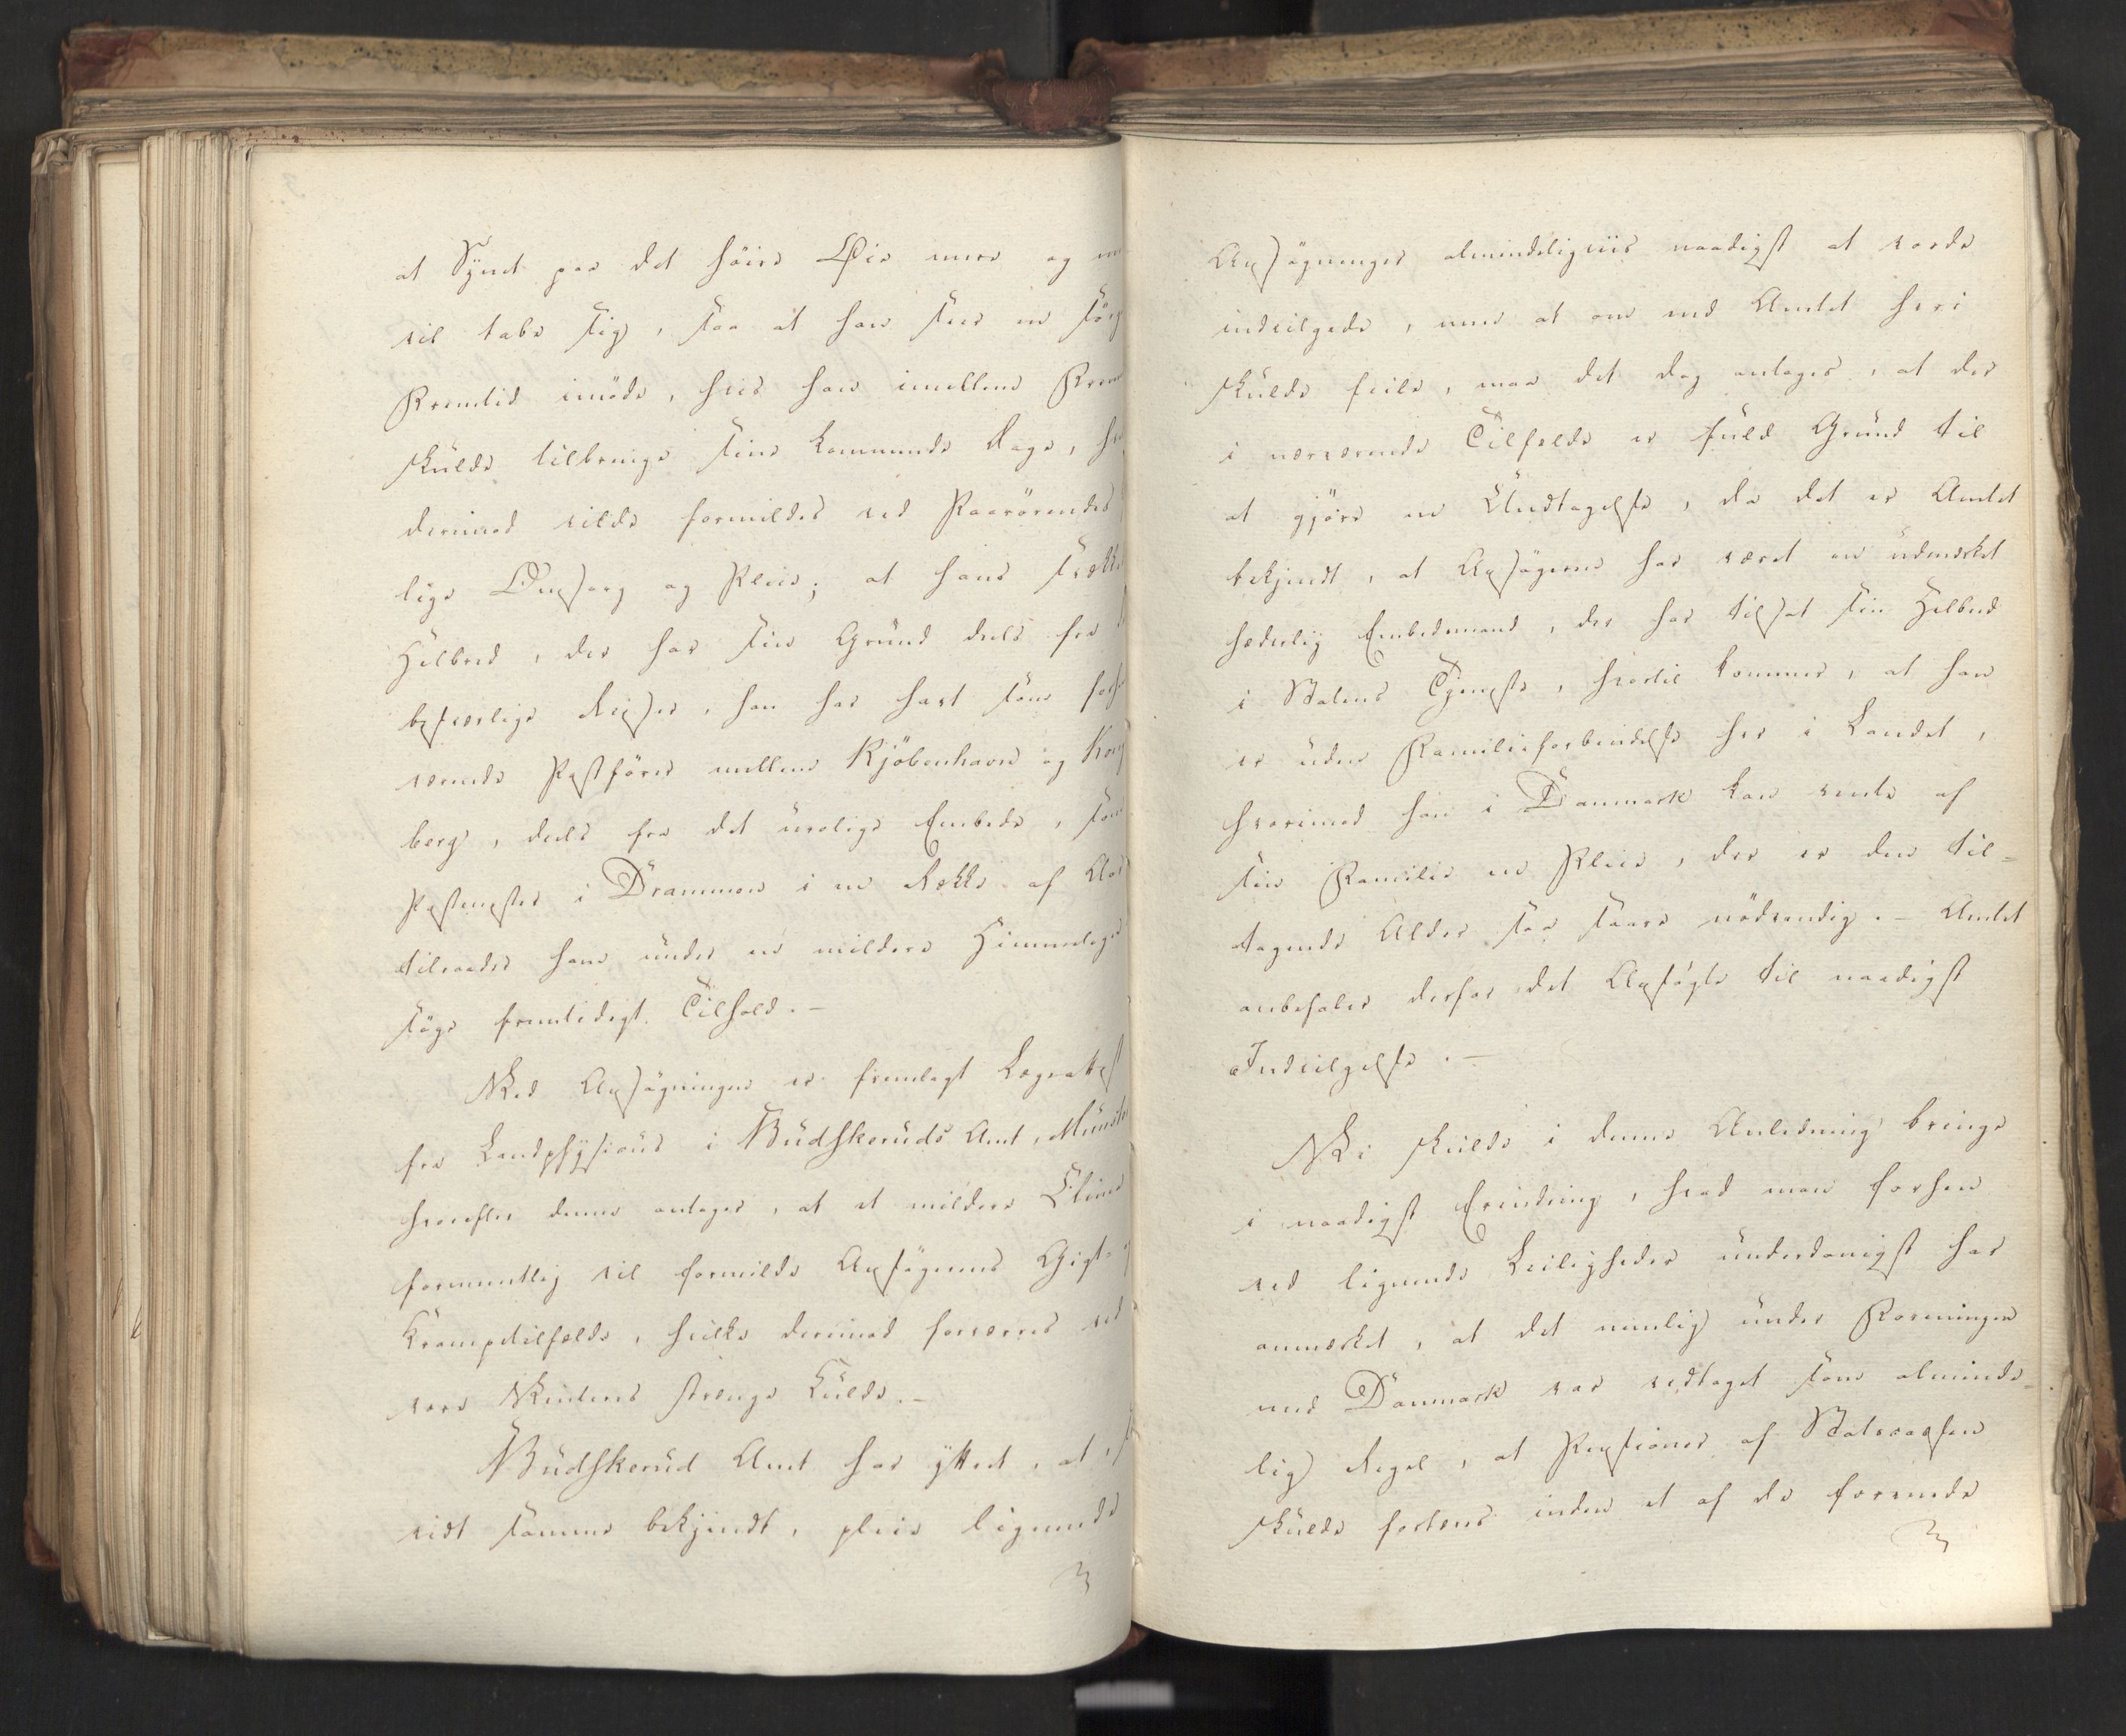 at Synet paa det høire Øie mere og
vil tabe sig, saa at han seer en
Fremtid imøde, hvis han imellem
skulde tilbringe sine kommende Dage,
derimod vilde formildes ved Paarørendes
lige Omsorg og Pleie; at hans
Helbred, der har sin Grund deels fra
besværlige Reiser, han har havt som
værende Postfører mellem Kjøbenhavn og
berg, deels fra det urolige Embede, som
Postmester i Drammen i en Række af
tilraader ham under en mildere
søge fremtidigt Tilhold.-
Ved Ansøgningen er fremlagt
fra Landphysicus i Budskeruds Amt,
hvorefter denne antager, at et mildere
formentlig vil formilde Ansøgerens Gigt-
Krampetilfælde, hvilke derimod forværres ved
vore Vinteres strenge Kulde.-
Budskerud Amt har yttret, at,
vidt samme bekjendt, pleie lignende
Ansøgninger almindeligviis naadigst at vorde
indvilgede, men at om end Amtet heri
skulde feile, maa det dog antages, at der
i nærværende Tilfælde er fuld Grund til
at gjøre en Undtagelse, da det er Amtet
bekjendt, at Ansøgeren har været en udmærket
hæderlig Embedsmand, der har tilsat sin Helbred
i Statens Tjeneste, hvortil kommer, at han
er uden Familieforbindelse her i Landet,
hvorimod han i Danmark kan vente af
sin Familie en Pleie, der er den til-
tagende Alder saa saare nødvendig.- Amtet
anbefaler derfor det Ansøgte til naadigst
Indvilgelse.-
Vi skulde i denne Anledning bringe
i naadigst Erindring, hvad man forhen
ved lignende Leiligheder underdanigst har
anmærket, at det nemlig under Foreningen
med Danmark var vedtaget som alminde-
lig Regel, at Pensioner af Statscassen
skulde fortæres inden et af de forenede